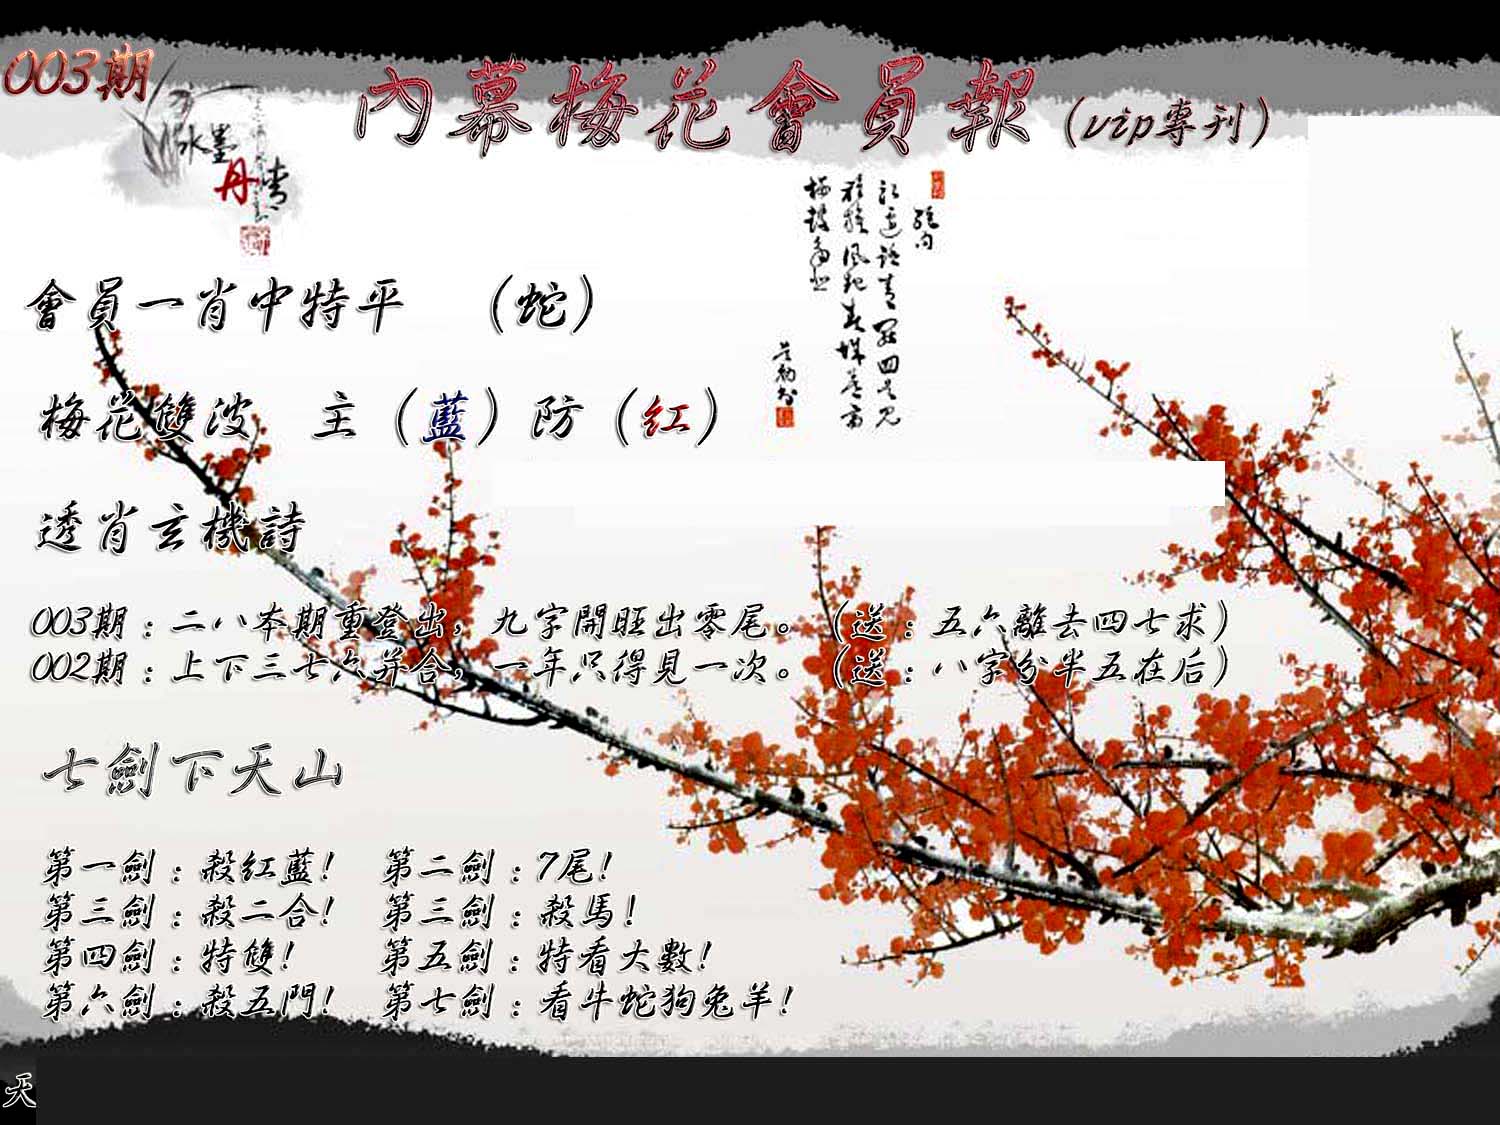 003期
內幕梅花會員報(vip專刊)
水墨
丹青
絕句
會員一肖中特平 (蛇)
梅花雙波 主(藍)防(紅)
透肖玄機詩
003期:二八本期重登出,九字開旺出零尾。(送:五六離去四七求)
002期:上下三七六并合,一年只得見一次。(送:八字分半五在后)
七劍下天山
第一劍:殺紅藍! 第二劍:7尾!
第三劍:殺二合! 第三劍:殺馬!
第四劍:特雙! 第五劍:特看大數!
第六劍:殺五門! 第七劍:看牛蛇狗兔羊!
天